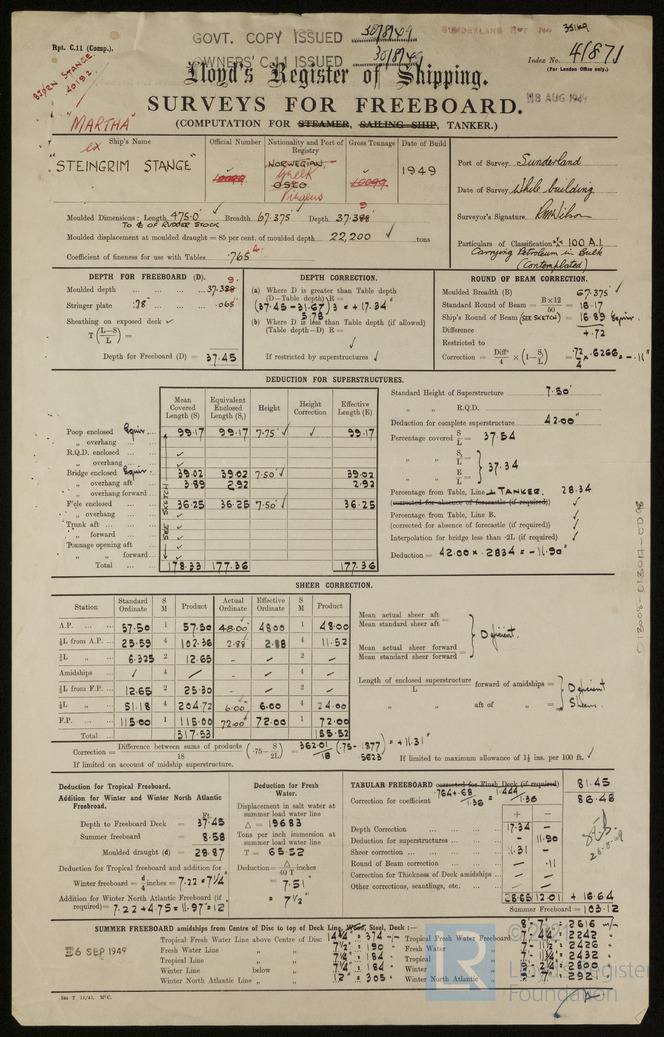 GOVT. COPY ISSUED 30/8/49
OWNERS' C.11 ISSUED 30/8/49
Rpt. C.11 (Comp.).
Index No. 41871
(For London Office only.)
18 AUG 1949
BJØRN STANGE
40192
Lloyd's Register of Shipping.
SURVEYS FOR FREEBOARD.
(COMPUTATION FOR STEAMER, SAILING SHIP, TANKER.)
"MARTHA"
ex Ship's Name
"STEINGRIM STANGE"
Official Number
Nationality and Port of Registry
NORWEGIAN
Greek
OSLO
Piraeus
Gross Tonnage
10099
Date of Build
1949
Port of Survey Sunderland
Date of Survey While building
Surveyor's Signature
Particulars of Classification ✠ 100 A.1.
Carrying Petroleum in Bulk
(Contemplated)
Moulded Dimensions: Length 475.0' Breadth 67.375' Depth 37.388
TO ℄ OF RUDDER STOCK
Moulded displacement at moulded draught = 85 per cent. of moulded depth 22,200 tons
Coefficient of fineness for use with Tables .765
DEPTH FOR FREEBOARD (D).
Moulded depth ... 37.388
Stringer plate .78" ... .065
Sheathing on exposed deck
T (L—S/L) =
Depth for Freeboard (D) = 37.45
DEPTH CORRECTION.
(a) Where D is greater than Table depth
(D—Table depth) R =
(37.45-31.67) 3 = + 17.34"
5.78
(b) Where D is less than Table depth (if allowed)
(Table depth—D) R =
If restricted by superstructures
ROUND OF BEAM CORRECTION.
Moulded Breadth (B) 67.375'
Standard Round of Beam = B×12/50 = 16.17
Ship's Round of Beam (SEE SKETCH) = 16.89 Equiv.
Difference +.72
Restricted to
Correction = Diff/4 × (1—S₁/L) = .72/4 × .6266 = -.11"
DEDUCTION FOR SUPERSTRUCTURES.
Mean Covered Length (S) Equivalent Enclosed Length (S₁) Height Height Correction Effective Length (E)
Poop enclosed Equiv. 99.17 99.17 7.75' 99.17
„ overhang
R.Q.D. enclosed
„ overhang
Bridge enclosed Equiv. 39.02 39.02 7.50' 39.02
„ overhang aft 3.89 2.92 2.92
„ overhang forward
F'cle enclosed 36.25 36.25 7.50' 36.25
„ overhang
Trunk aft
„ forward
Tonnage opening aft
„ „ forward
Total 178.33 177.36 177.36
SEE SKETCH
Standard Height of Superstructure 7.50'
„ „ R.Q.D.
Deduction for complete superstructure 42.00"
Percentage covered S/L = 37.54
„ „ S₁/L = } 37.34
„ „ E/L =
Percentage from Table, Line TANKER. 28.34
(corrected for absence of forecastle (if required))
Percentage from Table, Line B.
(corrected for absence of forecastle (if required))
Interpolation for bridge less than ·2L (if required)
Deduction = 42.00 × .2834 = -11.90"
SHEER CORRECTION.
Station Standard Ordinate S M Product Actual Ordinate Effective Ordinate S M Product
A.P. 57.50 1 57.50 48.00 48.00 1 48.00
⅙L from A.P. 25.59 4 102.36 2.88 2.88 4 11.52
⅓L „ 6.325 2 12.65 - 2
Amidships 4 - 4
⅓L from F.P. 12.65 2 25.30 - 2
⅙L „ 51.18 4 204.72 6.00 6.00 4 24.00
F.P. 115.00 1 115.00 72.00 72.00 1 72.00
Total 517.53 155.52
Mean actual sheer aft
Mean standard sheer aft = } Deficient.
Mean actual sheer forward
Mean standard sheer forward =
Length of enclosed superstructure/L forward of amidships = } Deficient Sheer.
„ „ aft of „ =
Correction = Difference between sums of products/18 (·75—S/2L) = 362.01/18 (.75-.1877) = + 11.31"
.5623
If limited on account of midship superstructure.
If limited to maximum allowance of 1½ ins. per 100 ft.
Deduction for Tropical Freeboard.
Addition for Winter and Winter North Atlantic Freeboard.
Ft.
Depth to Freeboard Deck = 37.45
Summer freeboard = 8.58
Moulded draught (d) = 28.87
Deduction for Tropical freeboard and addition for
Winter freeboard = d/4 inches = 7.22 = 7¼"
Addition for Winter North Atlantic Freeboard (if required) = 7.22 + 4.75 = 11.97 = 12"
Deduction for Fresh Water.
Displacement in salt water at summer load water line
Δ = 19683
Tons per inch immersion at summer load water line
T = 65.52
Deduction = Δ/40 T inches
= 7.51"
= 7½"
TABULAR FREEBOARD corrected for Flush Deck (if required) 81.45
Correction for coefficient .764+.68/1.36 = 1.444/1.36 86.48
+ -
Depth Correction 17.34 -
Deduction for superstructures - 11.90
Sheer correction 11.31 -
Round of Beam correction - .11
Correction for Thickness of Deck amidships - -
Other corrections, scantlings, etc. - -
28.65 12.01 + 16.64
Summer Freeboard = 103.12
SUMMER FREEBOARD amidships from Centre of Disc to top of Deck Line, Wood, Steel, Deck :— 8'-7" = 2616 m/m
Tropical Fresh Water Line above Centre of Disc 14¾" = 374 m/m
Fresh Water Line „ „ 7½" = 190
Tropical Line „ „ 7¼" = 184
Winter Line below „ 7¼" = 184
Winter North Atlantic Line „ „ 12" = 305
Tropical Fresh Water Freeboard 7'-4¼" = 2242
Fresh Water „ 7'-11½" = 2426
Tropical „ 7'-11¾" = 2432
Winter „ 2800
Winter North Atlantic „
26 SEP 1949
© 2019
Lloyd's Register
Foundation
LR